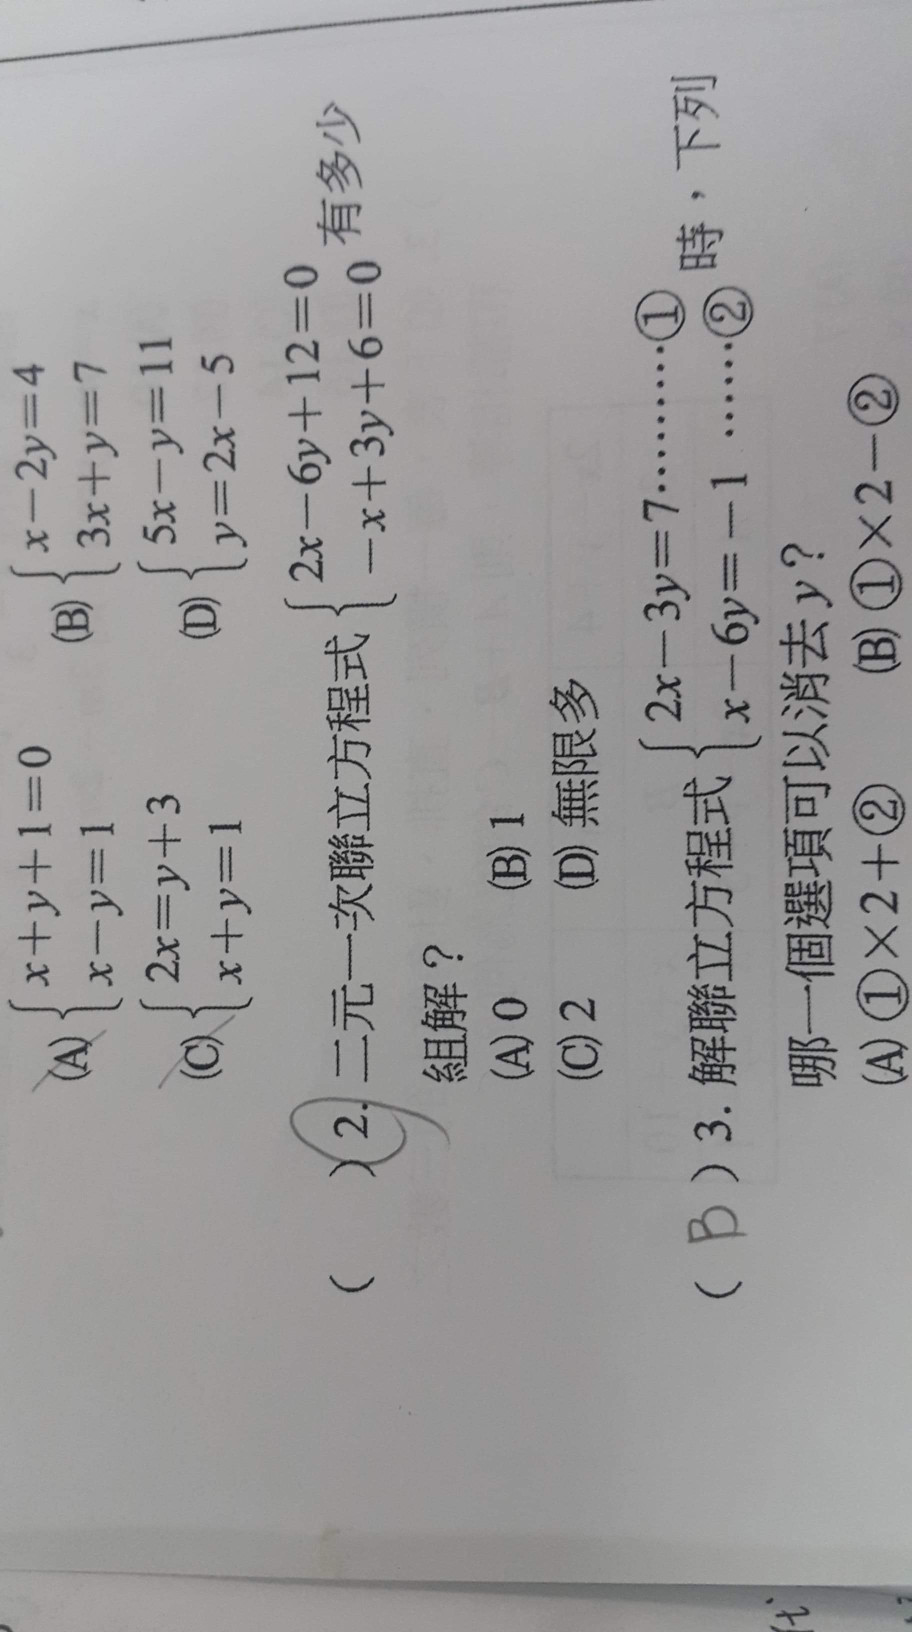 (A) { x+y+1=0
x-y=1
(B) { x-2y=4
3x+y=7
(C) { 2x=y+3
x+y=1
(D) { 5x-y=11
y=2x-5
(　) 2. 二元一次聯立方程式 { 2x-6y+12=0
-x+3y+6=0 有多少
組解？
(A) 0 (B) 1
(C) 2 (D) 無限多
( B ) 3. 解聯立方程式 { 2x-3y=7………①
x-6y=-1 ……② 時，下列
哪一個選項可以消去 y？
(A) ①×2+② (B) ①×2-②